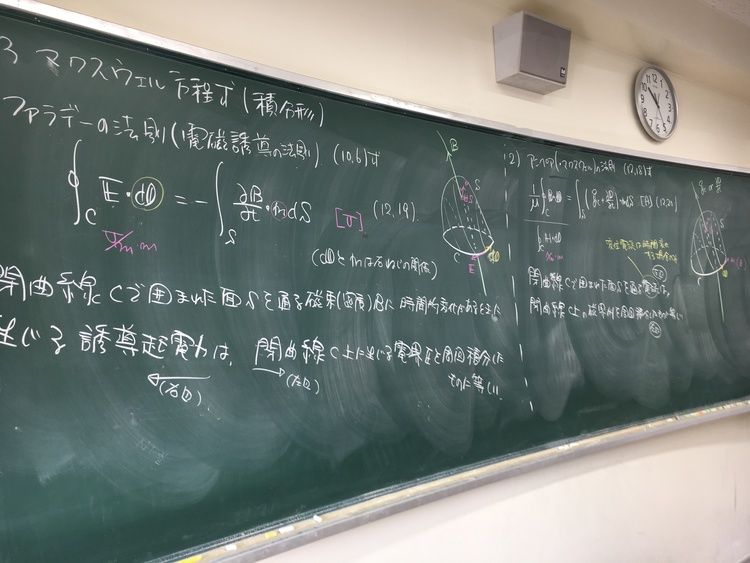 3 マクスウェル方程式(積分形)
ファラデーの法則(電磁誘導の法則) (10,6)式
∮_C E・dl = -∫_S ∂B/∂t・n dS [V] (12,19)
V/m m
(dlとnは右ねじの関係)
閉曲線Cで囲まれた面Sを通る磁束(密度)
時間的変化があるときに
生じる誘導起電力は、閉曲線C上に生じる電界Eを周回積分した
ものに等しい.
(右辺) (左辺)
B
n
dS
S
C
E
dl
(2) アンペア(・マクスウェル)の法則 (12,18)式
1/μ ∮_C B・dl = ∫_S ( + ∂D/∂t)・n dS [A] (12,20)
∮_C H・dl
A/m m
変位電流は時間変化
閉曲線Cで囲まれた面Sを通る電流は、
(右辺)
閉曲線C上の磁界Hを周回積分したものに等しい
(左辺)
S
C
12 1 2 3 4 5 6 7 8 9 10 11